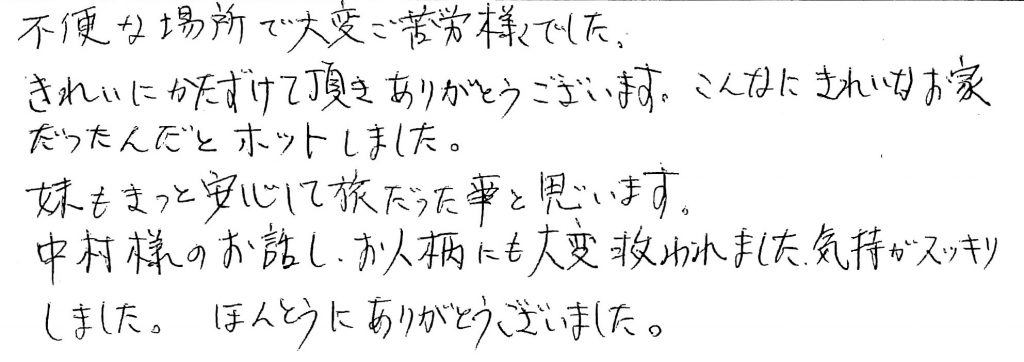 不便な場所で大変ご苦労様でした。
きれいにかたずけて頂きありがとうございます。こんなにきれいなお家
だったんだとホットしました。
妹もきっと安心して旅だった事と思います。
中村様のお話し、お人柄にも大変救われました。気持がスッキリ
しました。 ほんとうにありがとうございました。